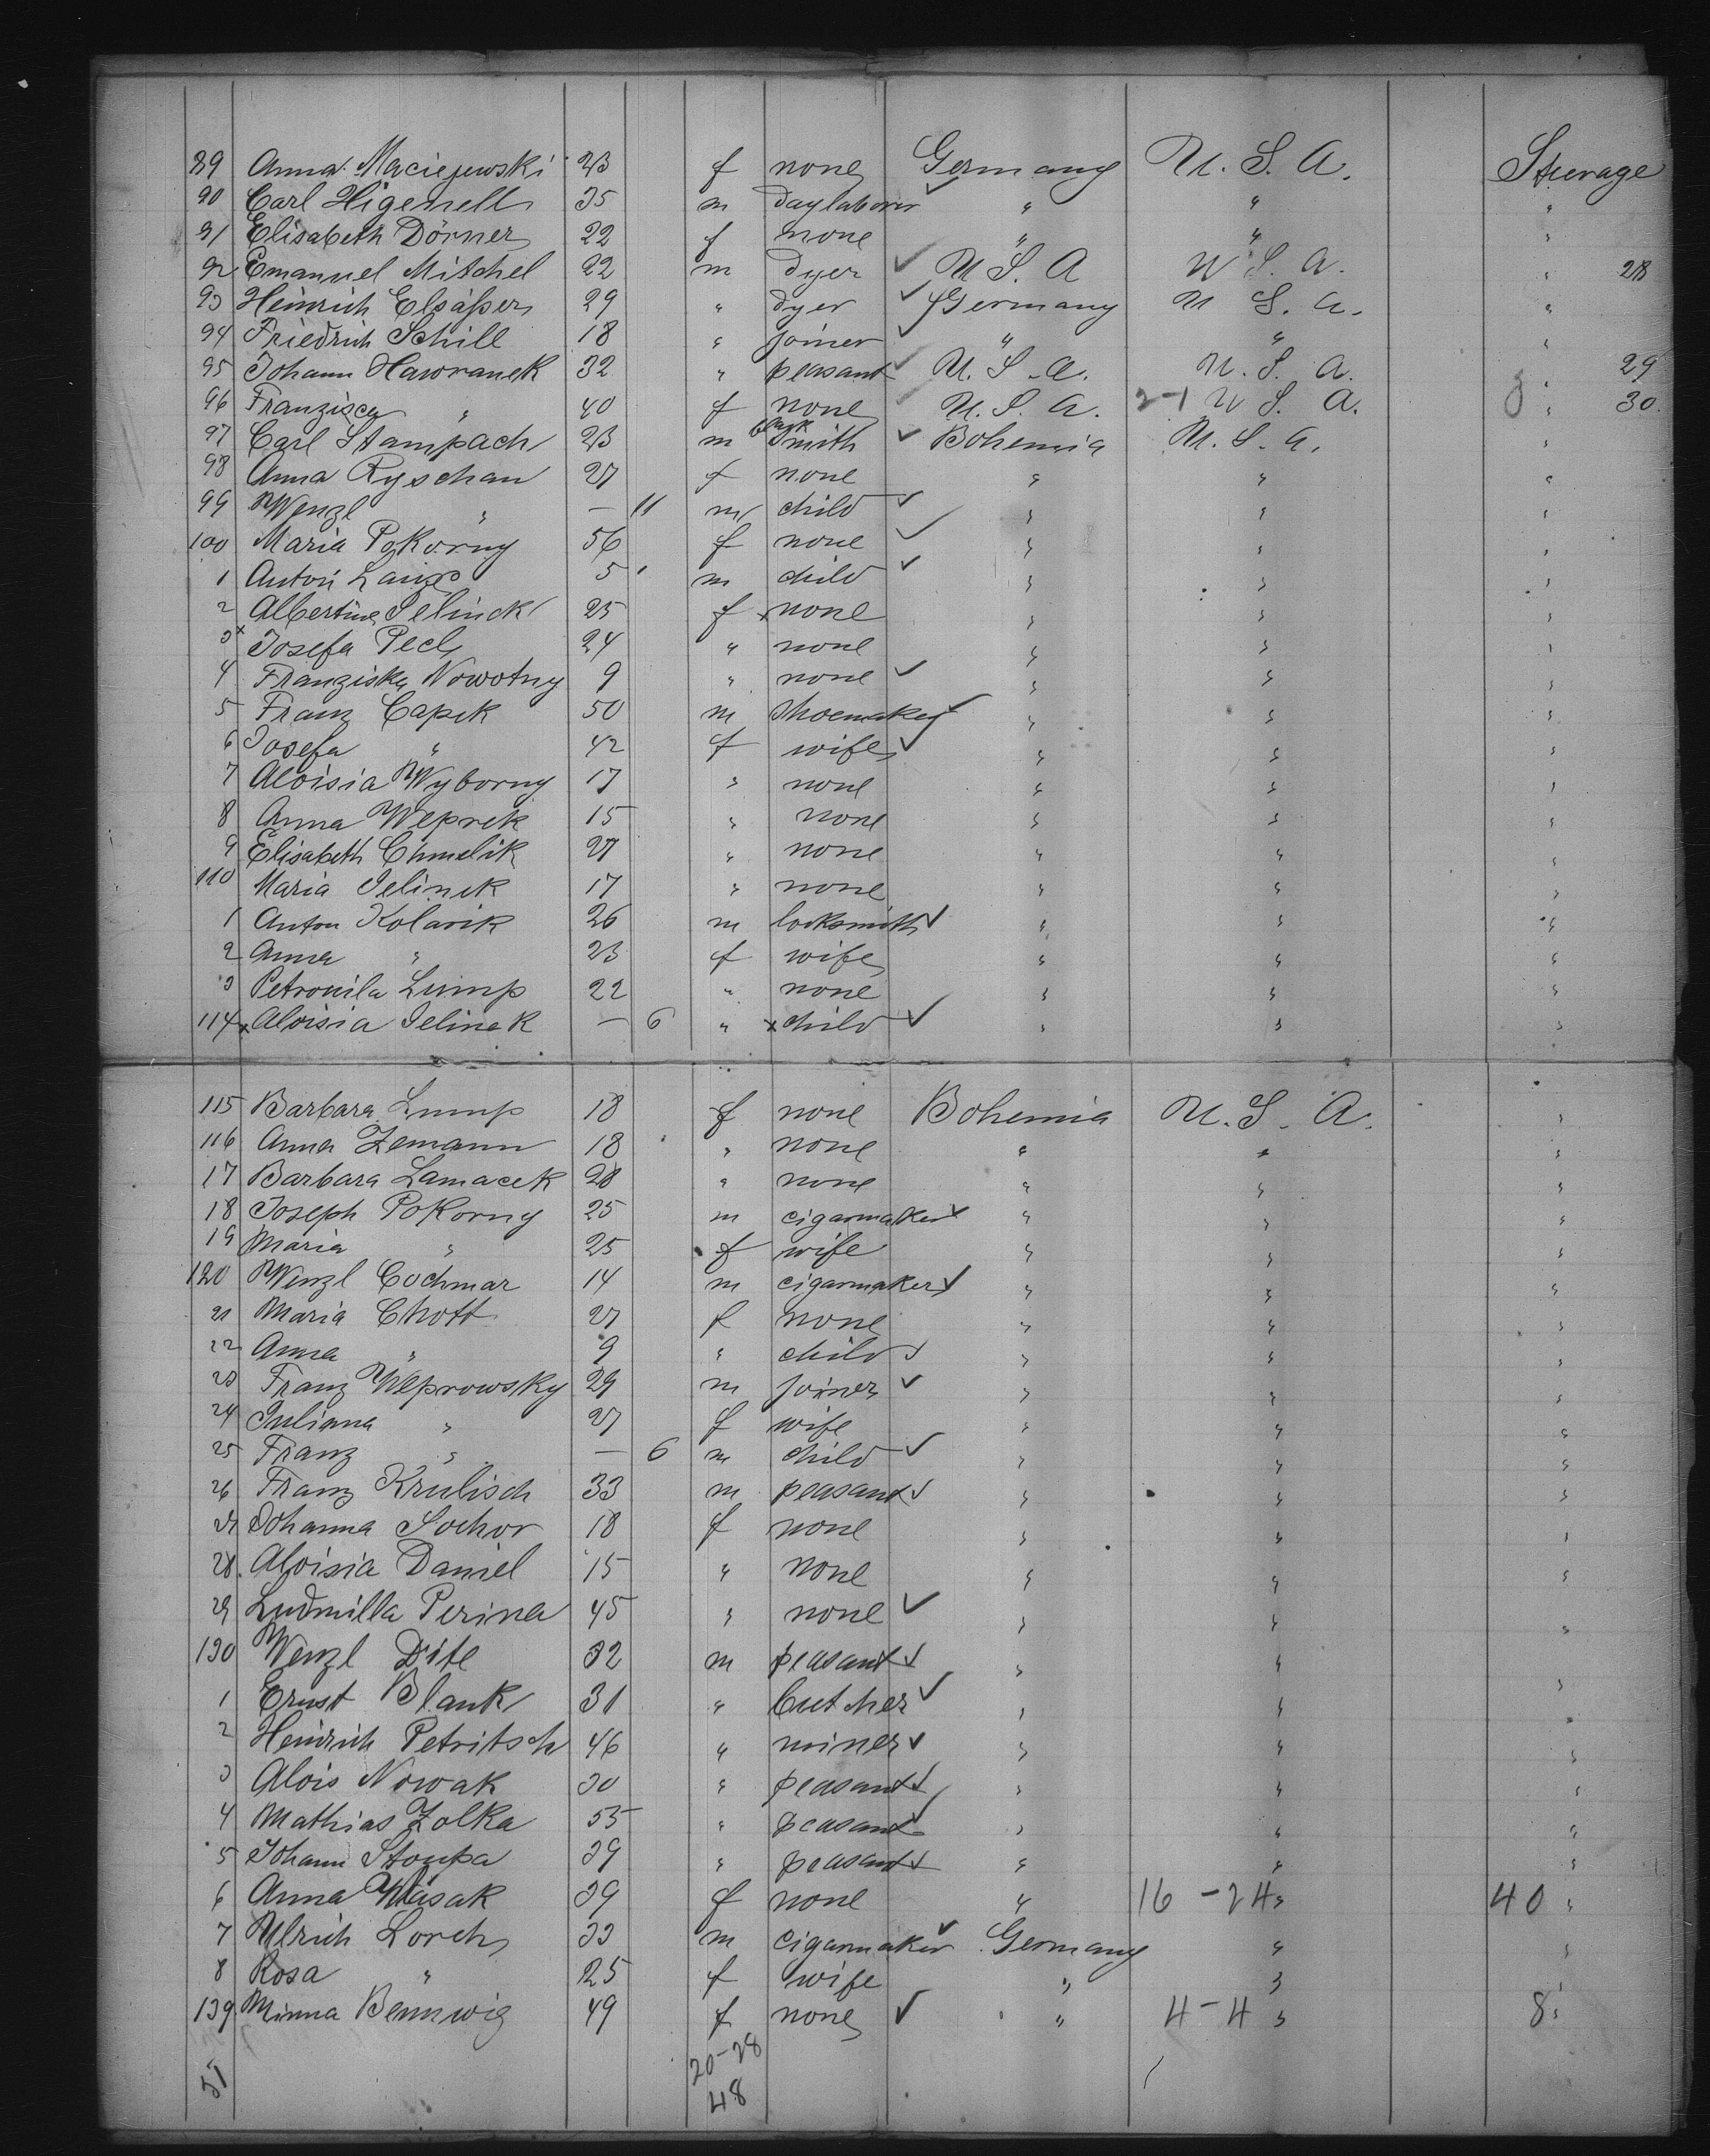 89 Anna Maciejewski 23 f none Germany U. S. A. Steerage
90 Carl Higenell 35 m daylaborer " " "
91 Elisabeth Dörner 22 f none " " "
92 Emanuel Mitchel 22 m dyer ✓ U S. A U S. A. " 28
93 Heinrich Elsäßer 29 " dyer ✓ Germany U S. A. "
94 Friedrich Schill 18 " joiner ✓ " " "
95 Johann Hawranek 32 " peasant ✓ U. S. A. U. S. A. " 29
96 Franzisca " 40 f none U. S. A. 2-1 U S. A. " 30
97 Carl Stampach 23 m black smith ✓ Bohemia U. S. A. "
98 Anna Ryschan 27 f none " " "
99 Wenzl " — 11 m child ✓ " " "
100 Maria Pokorny 56 f none ✓ " " "
1 Anton 5 m child ✓ " " "
2 Albertine Jelinek 25 f x none " " "
3 x Josefa Pech 24 " none " " "
4 Franziska Nowotny 9 " none ✓ " " "
5 Franz Capek 50 m shoemaker ✓ " " "
6 Josefa " 42 f wife ✓ " " "
7 Aloisia Wyborny 17 " none " " "
8 Anna Weprek 15 " none " " "
9 Elisabeth Chmelik 27 " none " " "
110 Maria Jelinek 17 " none " " "
1 Anton Kolarik 26 m locksmith ✓ " " "
2 Anna " 23 f wife " " "
3 Petronila Lump 22 " none " " "
114 x Aloisia Jelinek — 6 " x child ✓ " " "
115 Barbara Lump 18 f none Bohemia U. S. A. "
116 Anna Zemann 18 " none " " "
17 Barbara Lamacek 28 " none " " "
18 Joseph Pokorny 25 m cigarmaker ✓ " " "
19 Maria " 25 f wife " " "
120 Wenzl Cochmar 14 m cigarmaker ✓ " " "
21 Maria Chott 27 f none " " "
22 Anna " 9 " child ✓ " " "
23 Franz Weprowsky 29 m joiner ✓ " " "
24 Juliana " 27 f wife " " "
25 Franz " — 6 m child ✓ " " "
26 Franz Krulisch 33 m peasant ✓ " " "
27 Johanna Sochor 18 f none " " "
28 Aloisia Daniel 15 " none " " "
29 Ludmilla Perina 45 " none ✓ " " "
130 Wenzl Dite 32 m peasant ✓ " " "
1 Ernst Blank 31 " butcher ✓ " " "
2 Heinrich Petritsch 46 " miner ✓ " " "
3 Alois Nowak 30 " peasant ✓ " " "
4 Mathias Zolka 55 " peasant ✓ " " "
5 Johann Stoupa 39 " peasant ✓ " " "
6 Anna Wlasak 39 f none " 16 - 24 " 40 "
7 Ulrich Lorch 33 m cigarmaker ✓ Germany " "
8 Rosa " 25 f wife " " "
139 Minna Bennwig 49 f none ✓ " 4 - 4 " 8 "
51 20-28
48